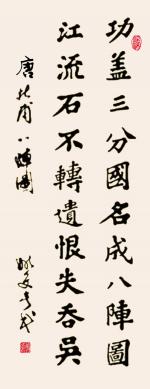 功蓋三分國名成八陣圖
江流石不轉遺恨失吞吳
唐杜甫八陣圖